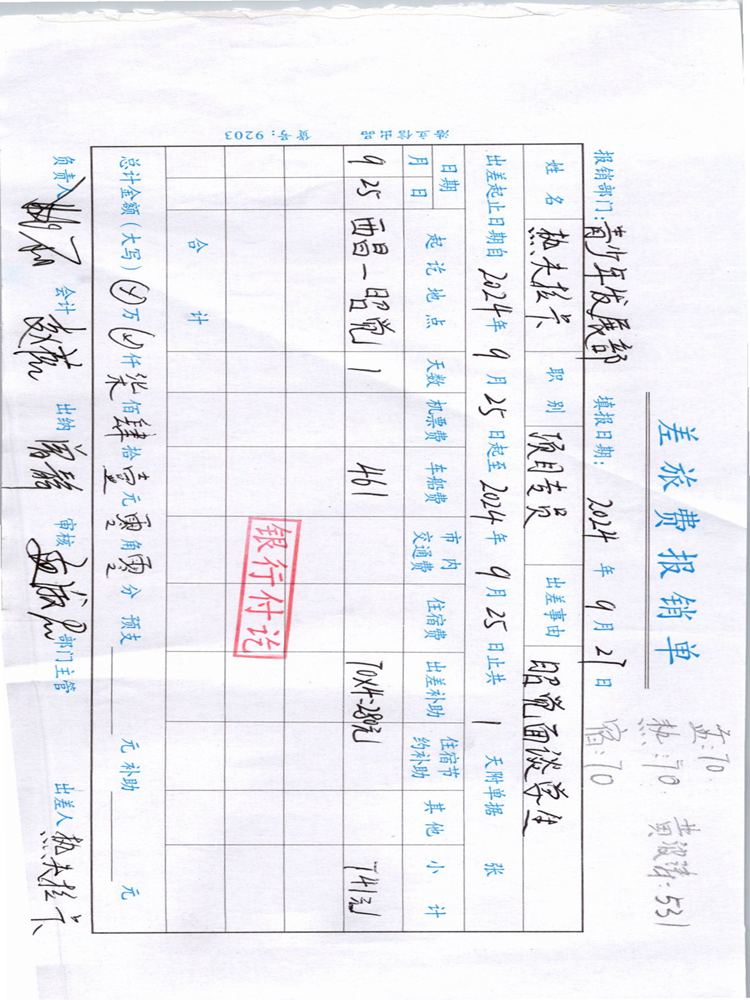 差旅费报销单
孟:70
热:70
宿:70
黄凝涛:531
报销部门:青少年发展部 填报日期: 2024 年 9 月 27 日
姓名 热夫拉卡 职别 项目专员 出差事由 昭觉面谈学生
出差起止日期自 2024 年 9 月 25 日起至 2024 年 9 月 25 日止共 1 天附单据 张
日期 起讫地点 天数 机票费 车船费 市内交通费 住宿费 出差补助 住宿节约补助 其他 小计
月 日
9 25 西昌—昭觉 1 461 70x4=280元 741元
银行付讫
合计
总计金额(大写) 万 仟 柒 佰 肆 拾 壹 元 零 角 零 分 预支 元 补助 元
负责人 会计 出纳 审核 部门主管 出差人 热夫拉卡
货号:9203